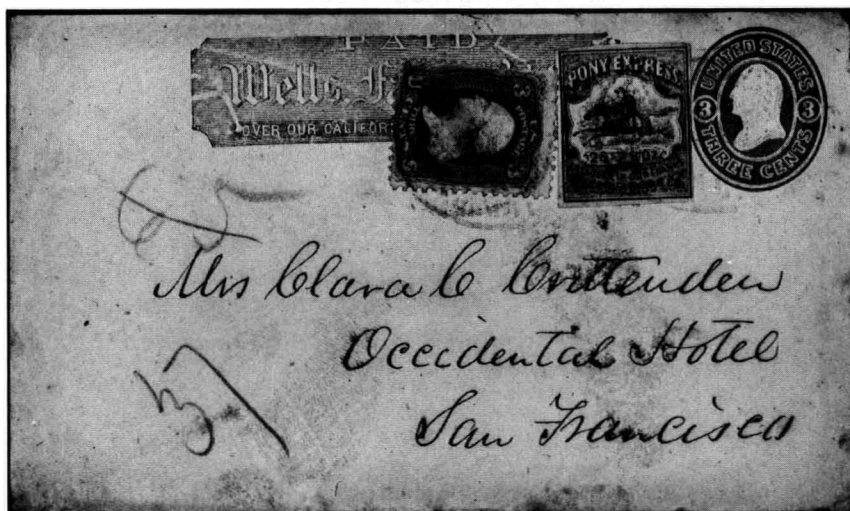 PAID
Wells, F
OVER OUR CALIFOR
3
PONY EXPRESS
UNITED STATES
3 3
THREE CENTS
Mrs Clara C Crittenden
Occidental Hotel
San Francisco